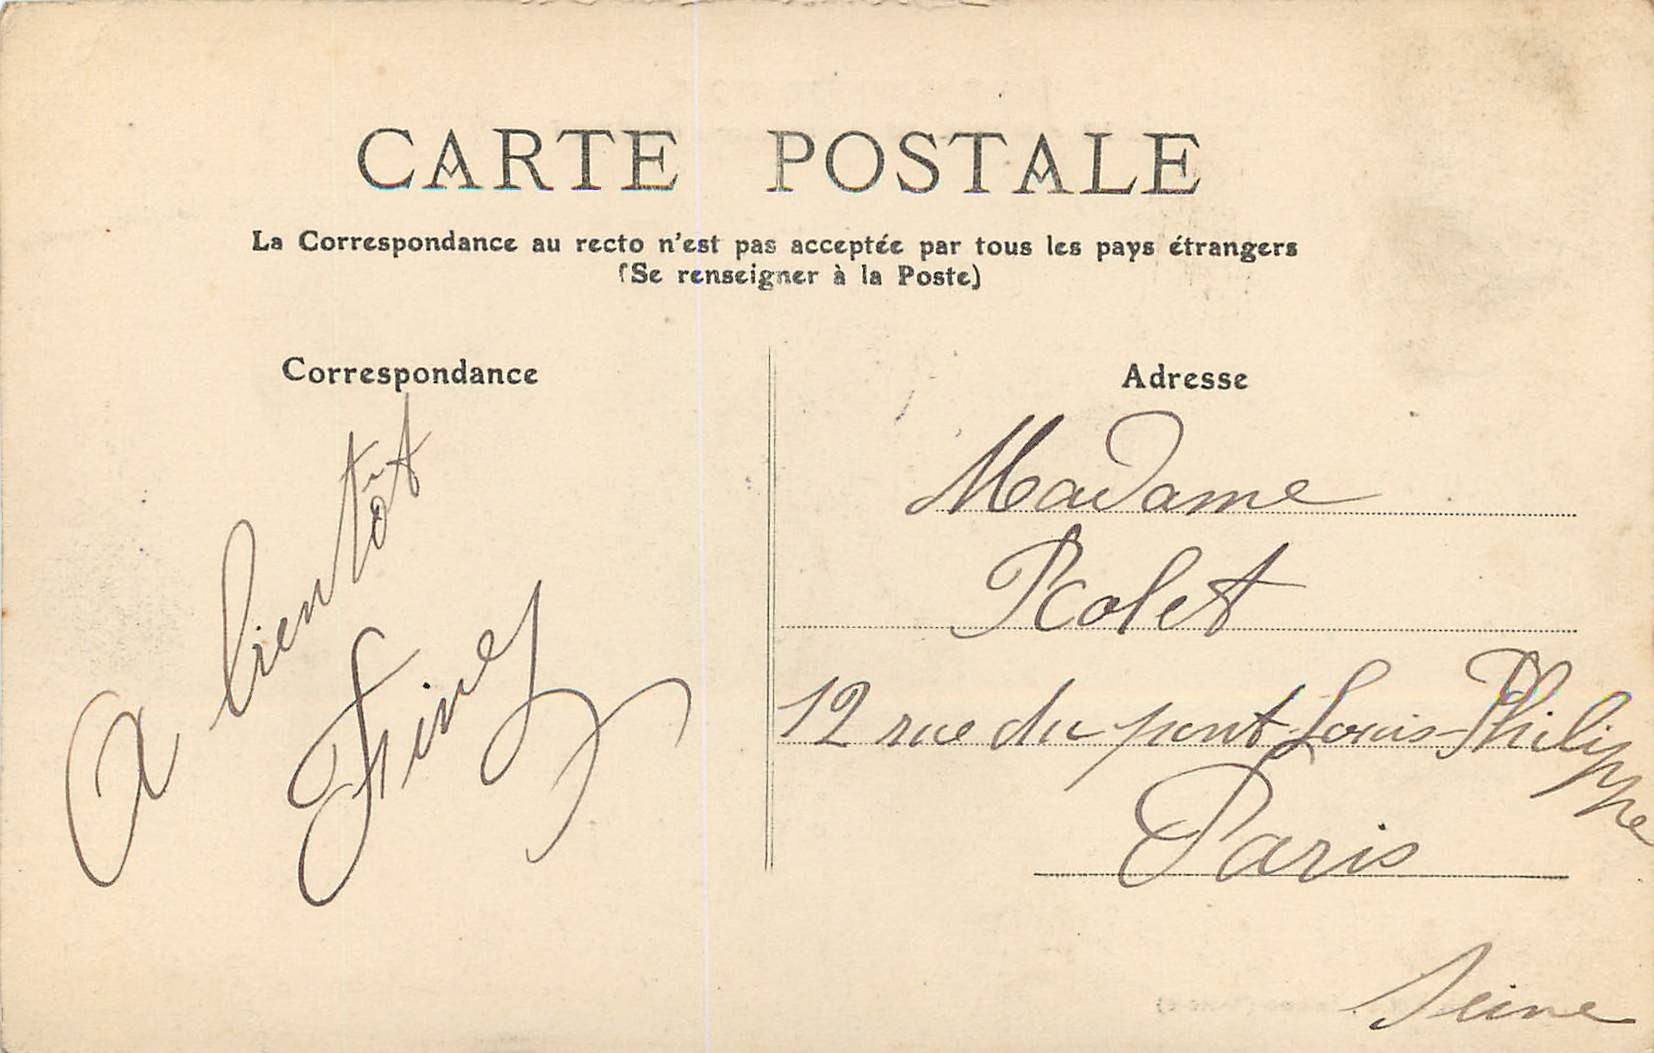 CARTE POSTALE
La Correspondance au recto n'est pas acceptée par tous les pays étrangers
(Se renseigner à la Poste)
Correspondance
A bientôt
Adresse
Madame
Rolet
12 rue du pont Louis-Philippe
Paris
Seine